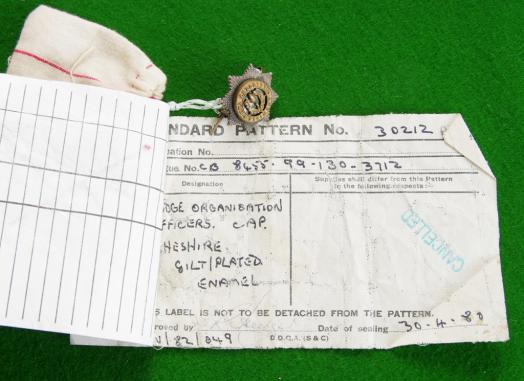 NDARD PATTERN No. 30212
ation No.
ue No. CB 8455-99-130-3712
Designation
Supplies shall differ from this Pattern
in the following respects:-
DGE ORGANISATION
FFICERS. CAP.
HESHIRE.
GILT/PLATED
ENAMEL
CANCELLED
S LABEL IS NOT TO BE DETACHED FROM THE PATTERN.
roved by
Date of sealing 30-4-80
/82/049
D.D.C.A. (S & C)